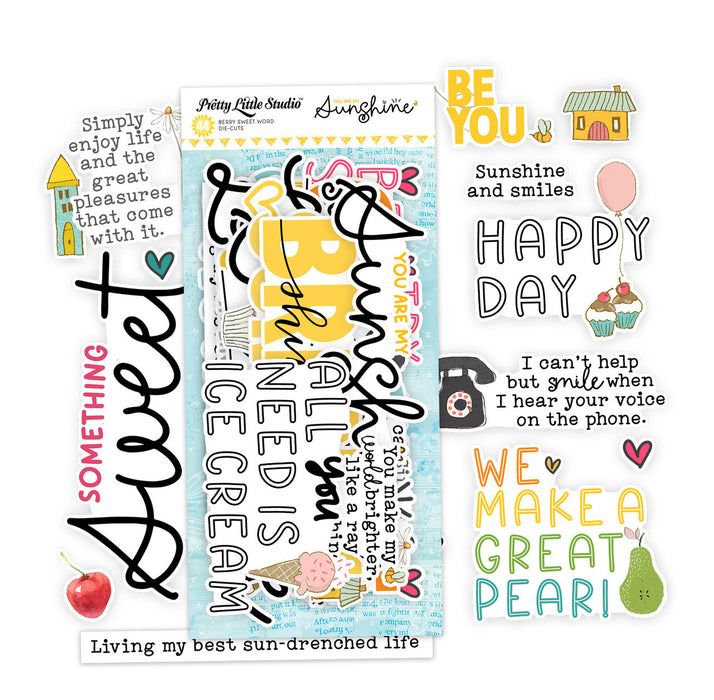 Pretty Little Studio™
BERRY SWEET WORD
DIE-CUTS
YOU ARE MY
Sunshine
Simply
enjoy life
and the
great
pleasures
that come
with it.
SOMETHING
Sweet
Living my best sun-drenched life
YOU ARE MY
Sunsh
BRI
shi
ALL you
NEED IS
ICE CREAM
You make my
world brighter,
like a ray
BE
YOU
Sunshine
and smiles
HAPPY
DAY
I can't help
but smile when
I hear your voice
on the phone.
WE
MAKE A
GREAT
PEAR!